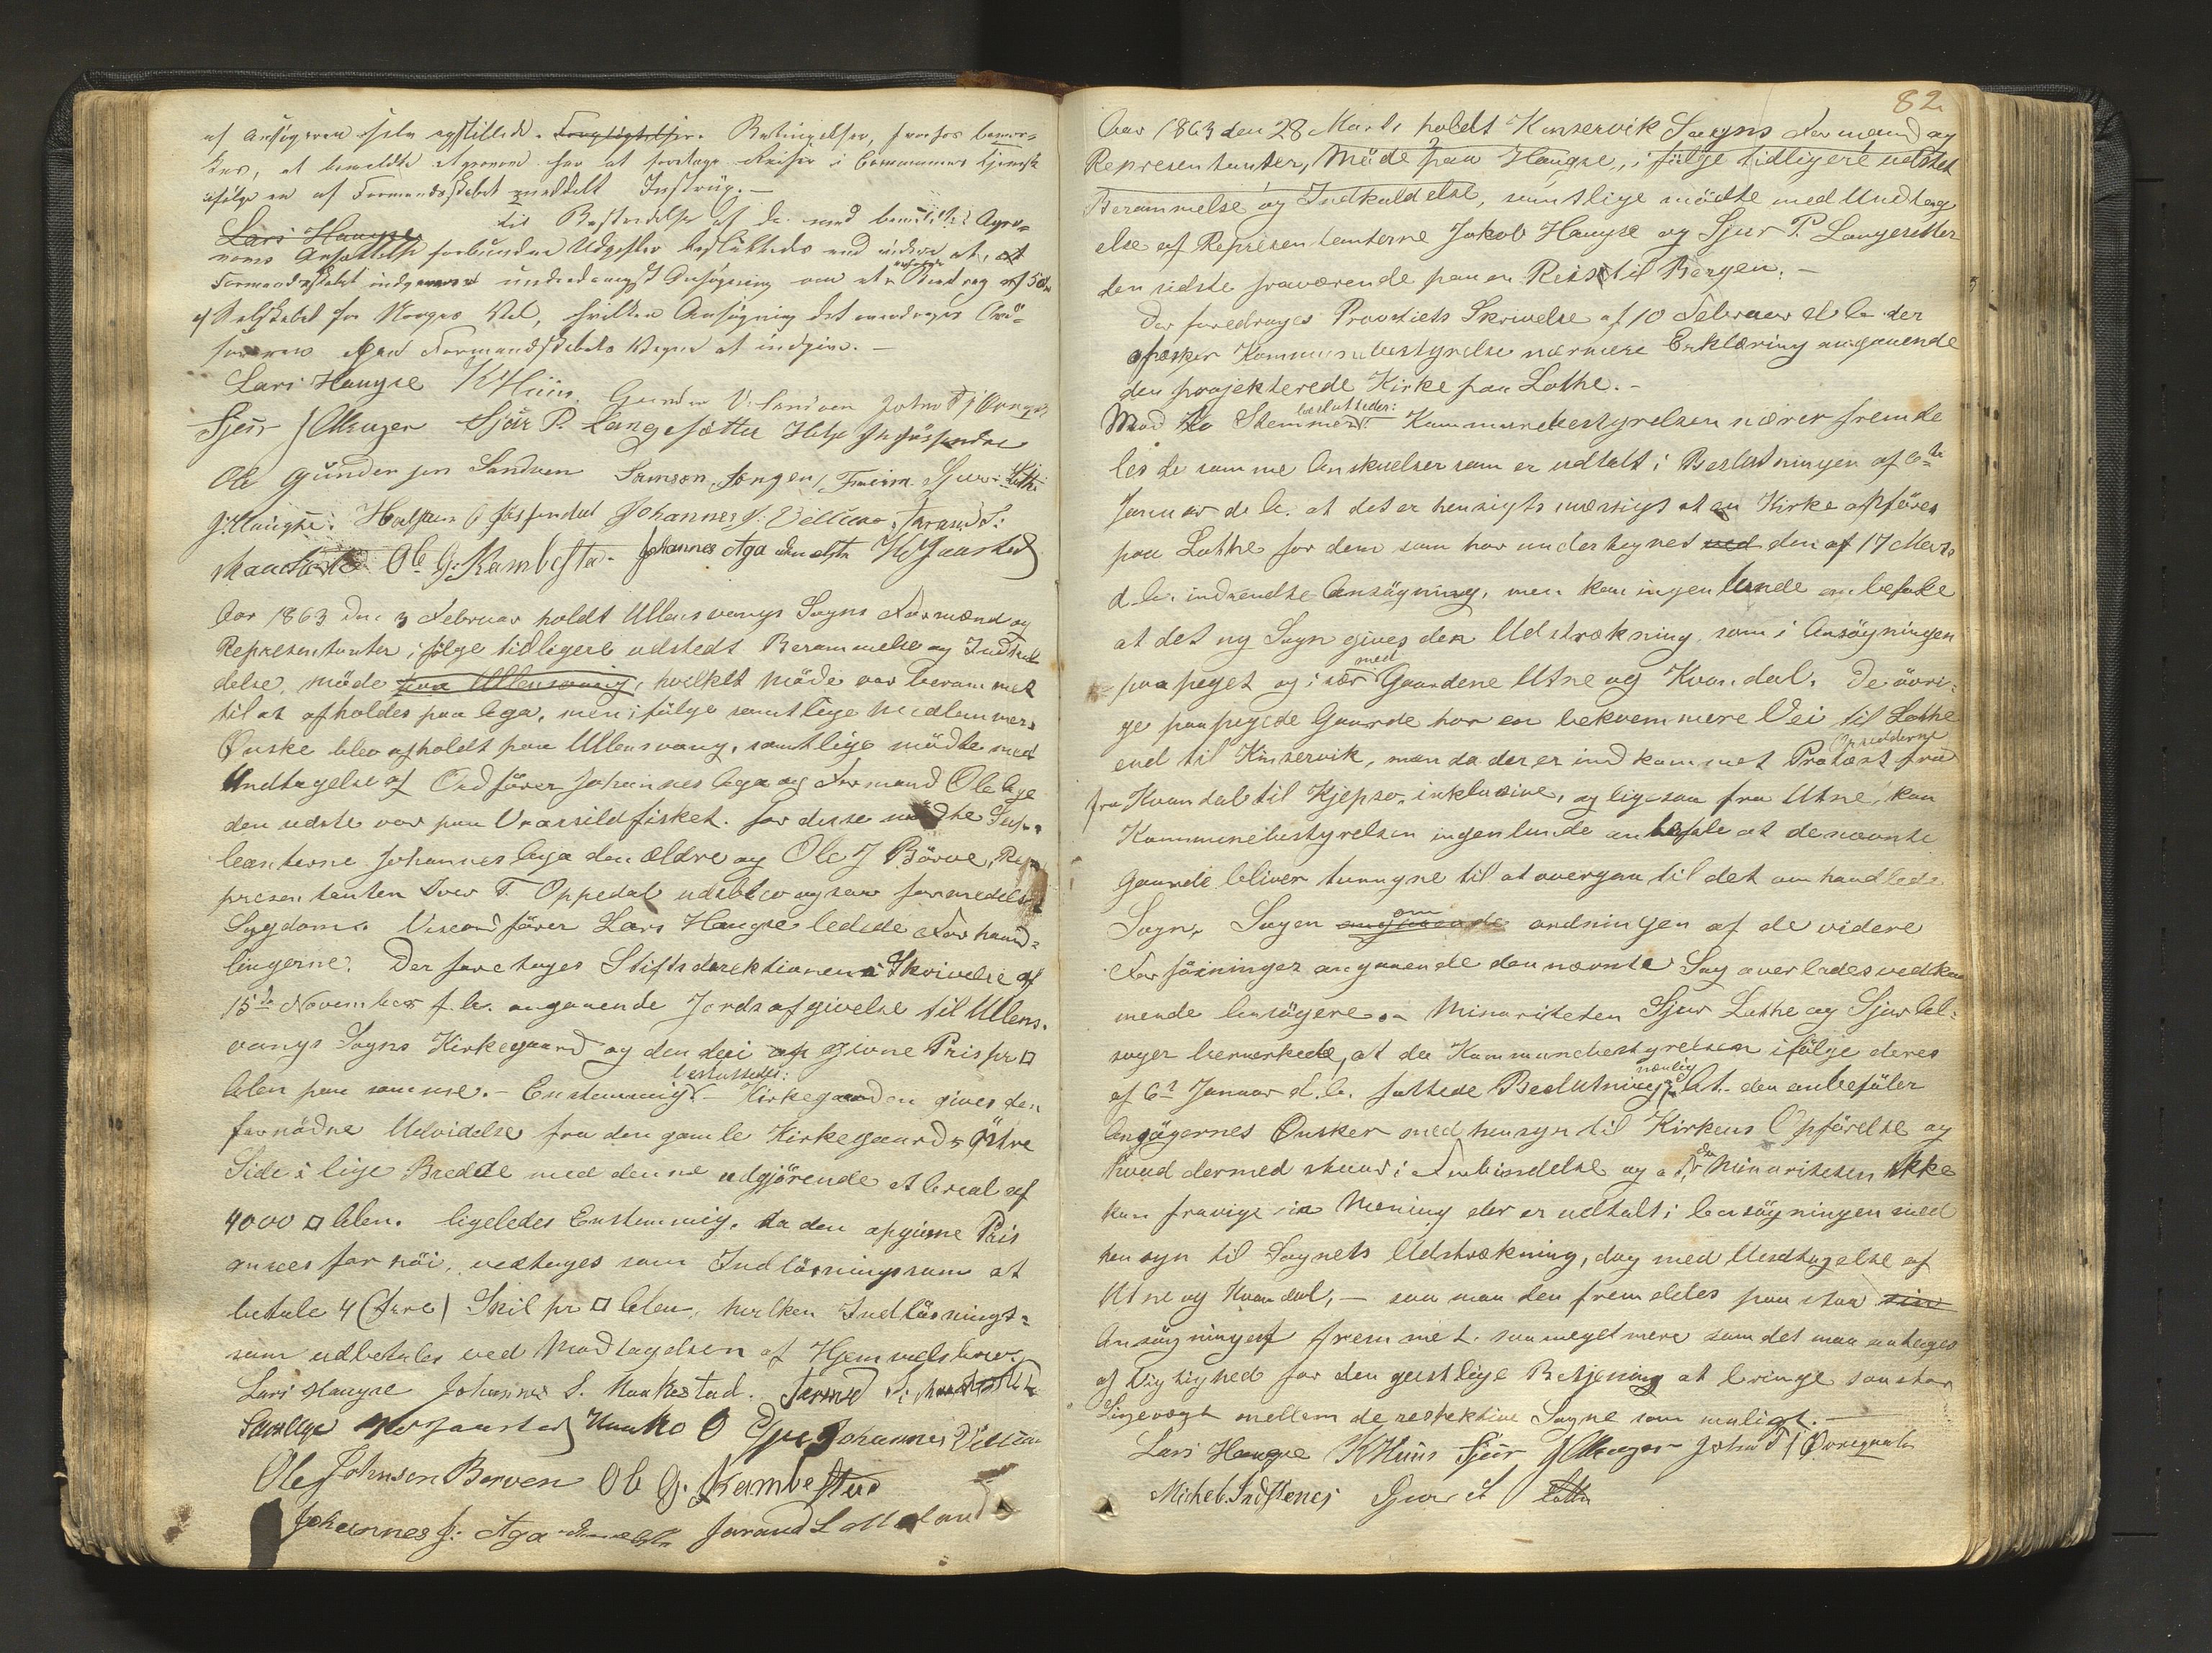 af Ansøgeren selv opstillede Betingelser, hvorhos bemær-
kes, at bemeldte Agronom har at foretage Reiser i Communens Tjeneste
ifølge en af Formandskabet meddelt Instrux.-
Lars Haugse til Bestridelse af de med bemeldte Agro-
noms Ansættelse forbundne Udgifter besluttedes end videre at, at
Formandskabet indgaar med underdanigst Ansøgning om et Bidrag af 50
af Selskabet for Norges Vel, hvilken Ansøgning det overdrages Ord-
føreren paa Formandskabets Vegne at indgive.-
Lars Haugse K Huus. Gunder V. Sandven John T
Sjur J Alsager Sjur P. Langesætter Helje
Ole Gundersen Sandven Samson Jongen Sjur Lothe
Johannes J. Velure
Ole G. Kambestad Johannes Aga den eldre
Aar 1863 den 3 Februar holdt Ullensvangs Sogns Formænd og
Representanter, ifölge tidligere udstedt Berammelse og Indkal
delse, möde paa Ullensvang, hvilket Möde var berammet
til at afholdes paa Aga, men ifölge samtlige Medlemmers
Önske blev afholdt paa Ullensvang, samtlige mödte med
Undtagelse af Ordförer Johannes Aga og Formand Ole Aga
den sidste var paa Vaarsildfisket. for disse mödte Sup-
leanterne Johannes Aga den ældre og Ole J Börve, Re-
presentanten Iver T. Oppedal udeblev ogsaa formedelst
Sygdom. Viceordförer Lars Haugse ledede Forhand-
lingerne. Der foretoges Stiftsdirektionens Skrivelse af
15de November f. A. angaaende Jords afgivelse til Ullens-
vangs Sogns Kirkegaard og den deri opgivne Pris pr □
Alen paa samme.- Enstemmigt besluttedes: - Kirkegaarden gives den
fornödne Udvidelse fra den gamle Kirkegaards östre
Side i lige Bredde med denne udgjörende et Areal af
4000 □ Alen. ligeledes Enstemmig, da den opgivne Pris
ansees for höi, vedtoges som Indlösningssum at
betale 4 (fire) Skil pr □ Alen, hvilken Indlösnings-
sum udbetales ved Modtagelsen af Hjemmelsbrev.
Lars Haugse Johannes S. Maakestad.
Johannes Velure
Ole Johnsen Berven Ole G. Kambestad
Johannes J. Aga den eldre
82.
Aar 1863 den 28 Marts holdt Kinservik Sogns Formænd og
Representanter, Möde paa Haugse, ifölge tidligere udstet
Berammelse og Indkaldelse, samtlige mödte med Undtag
else af Representanterne Jakob Haugse og Sjur P. Langesetter
den sidste fraværende paa en Reise til Bergen.-
Der foredroges Provstiets Skrivelse af 10 Februar d. A. der
æsker Kommunebestyrelse nærmere Erklæring angaaende
den projekterede Kirke paa Lothe.-
Mod to Stemmer besluttedes: Kommunebestyrelsen nærer fremde
les de samme Anskuelser som er udtalt i Beslutningen af 6te
Januar d. A. at det er hensigtsmæssigt at en Kirke opföres
paa Lothe for dem som har undertegnet ved den af 17 Marts
d. A. indsendte Ansögning, men kan ingenlunde anbefale
at det ny Sogn gives den Udstrækning, som i Ansögningen
paapeget og især med Gaardene Utne og Kvandal. De övri-
ge paapegede Gaarde har en bekvemmere Vei til Lothe
end til Kinservik, men da der er indkommet Protest fra Opsidderne
fra Kvandal til Kjepso, inklusive, og ligesaa fra Utne, kan
Kommunebestyrelsen ingenlunde anbefale at de nævnte
Gaarde bliver tvungne til at overgaa til det omhandlede
Sogn. Sagen angaaende om ordningen af de videre
Forföininger angaaende den nævnte Sag overlades vedkom
mende Ansögere.- Minoriteten Sjur Lothe og Sjur Al-
sager bemerkede, at da Kommunebestyrelsen ifölge deres
af 6te Januar d. A. fattede Beslutning, nemlig At den anbefaler
Ansögernes Önsker med hensyn til Kirkens Opförelse og
hvad dermed staar i Forbindelse og at, da Minoriteten ikke
kan fravige sin Mening der er udtalt i Ansögningen med
hensyn til Sognets Udstrækning, dog med Undtagelse af
Utne og Kvandal, - saa maa den fremdeles paastaa sin
Ansögningen fremmet. saameget mere som det maa antages
af Vigtighed for den geistlige Betjening at bringe saa stor
Ligevegt mellem de respektive Sogne som muligt.-
Lars Haugse K Huus Sjur J Alsager John T
Michel Sjur Lothe